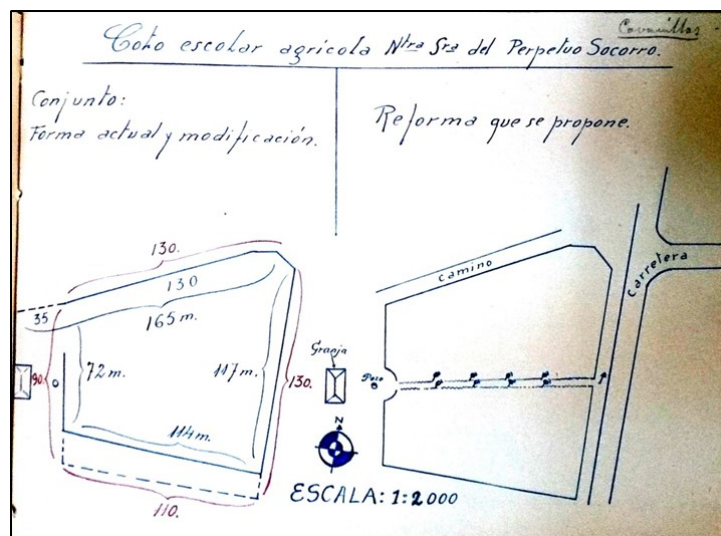 Covanillas
Coto escolar agrícola Ntra Sra del Perpetuo Socorro.
Conjunto:
Forma actual y modificación.
Reforma que se propone.
130.
130
165 m.
35
90.
72 m.
117 m.
130.
114 m.
110.
Granja
Poso
N
camino
carretera
ESCALA: 1:2000